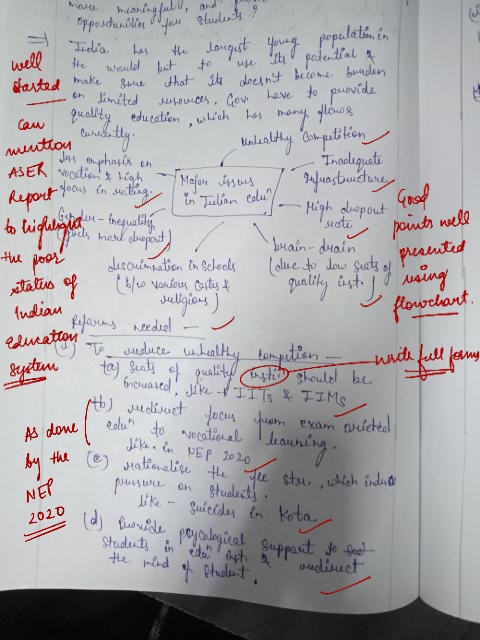 more meaningful, and
opportunities for students?
⇒ India has the largest young population in
the would but to use its potential &
make sure that its doesn't become burden
on limited resources, Gov. have to provide
quality education, which has many flows
currently.
unhealthy Competition
less emphasis on
vocation & high
focus in rating.
Major issues
in Indian educⁿ
Inadequate
Infrastructure
High dropout
rate
Gender-inequality
(girls more dropout)
brain-drain
(due to low seats of
quality inst.)
discrimination in Schools
(b/w various castes &
religions)
Reforms needed -
To reduce unhealthy compition -
(a) Seats of quality insti should be
increased, like - IITs & IIMs
(b) redirect focus from exam oriented
educⁿ to vocational learning.
like in NEP 2020
(c) rationalise the fee str., which induce
pressure on students.
like - Suicides in Kota
(d) Provide psycological support to
students in educⁿ inst. & redirect
the mind of student.
well
started
can
mention
ASER
Report
to highlight
the poor
status of
Indian
Education
System
Good
points well
presented
using
flowchart.
write full forms
As done
by the
NEP
2020